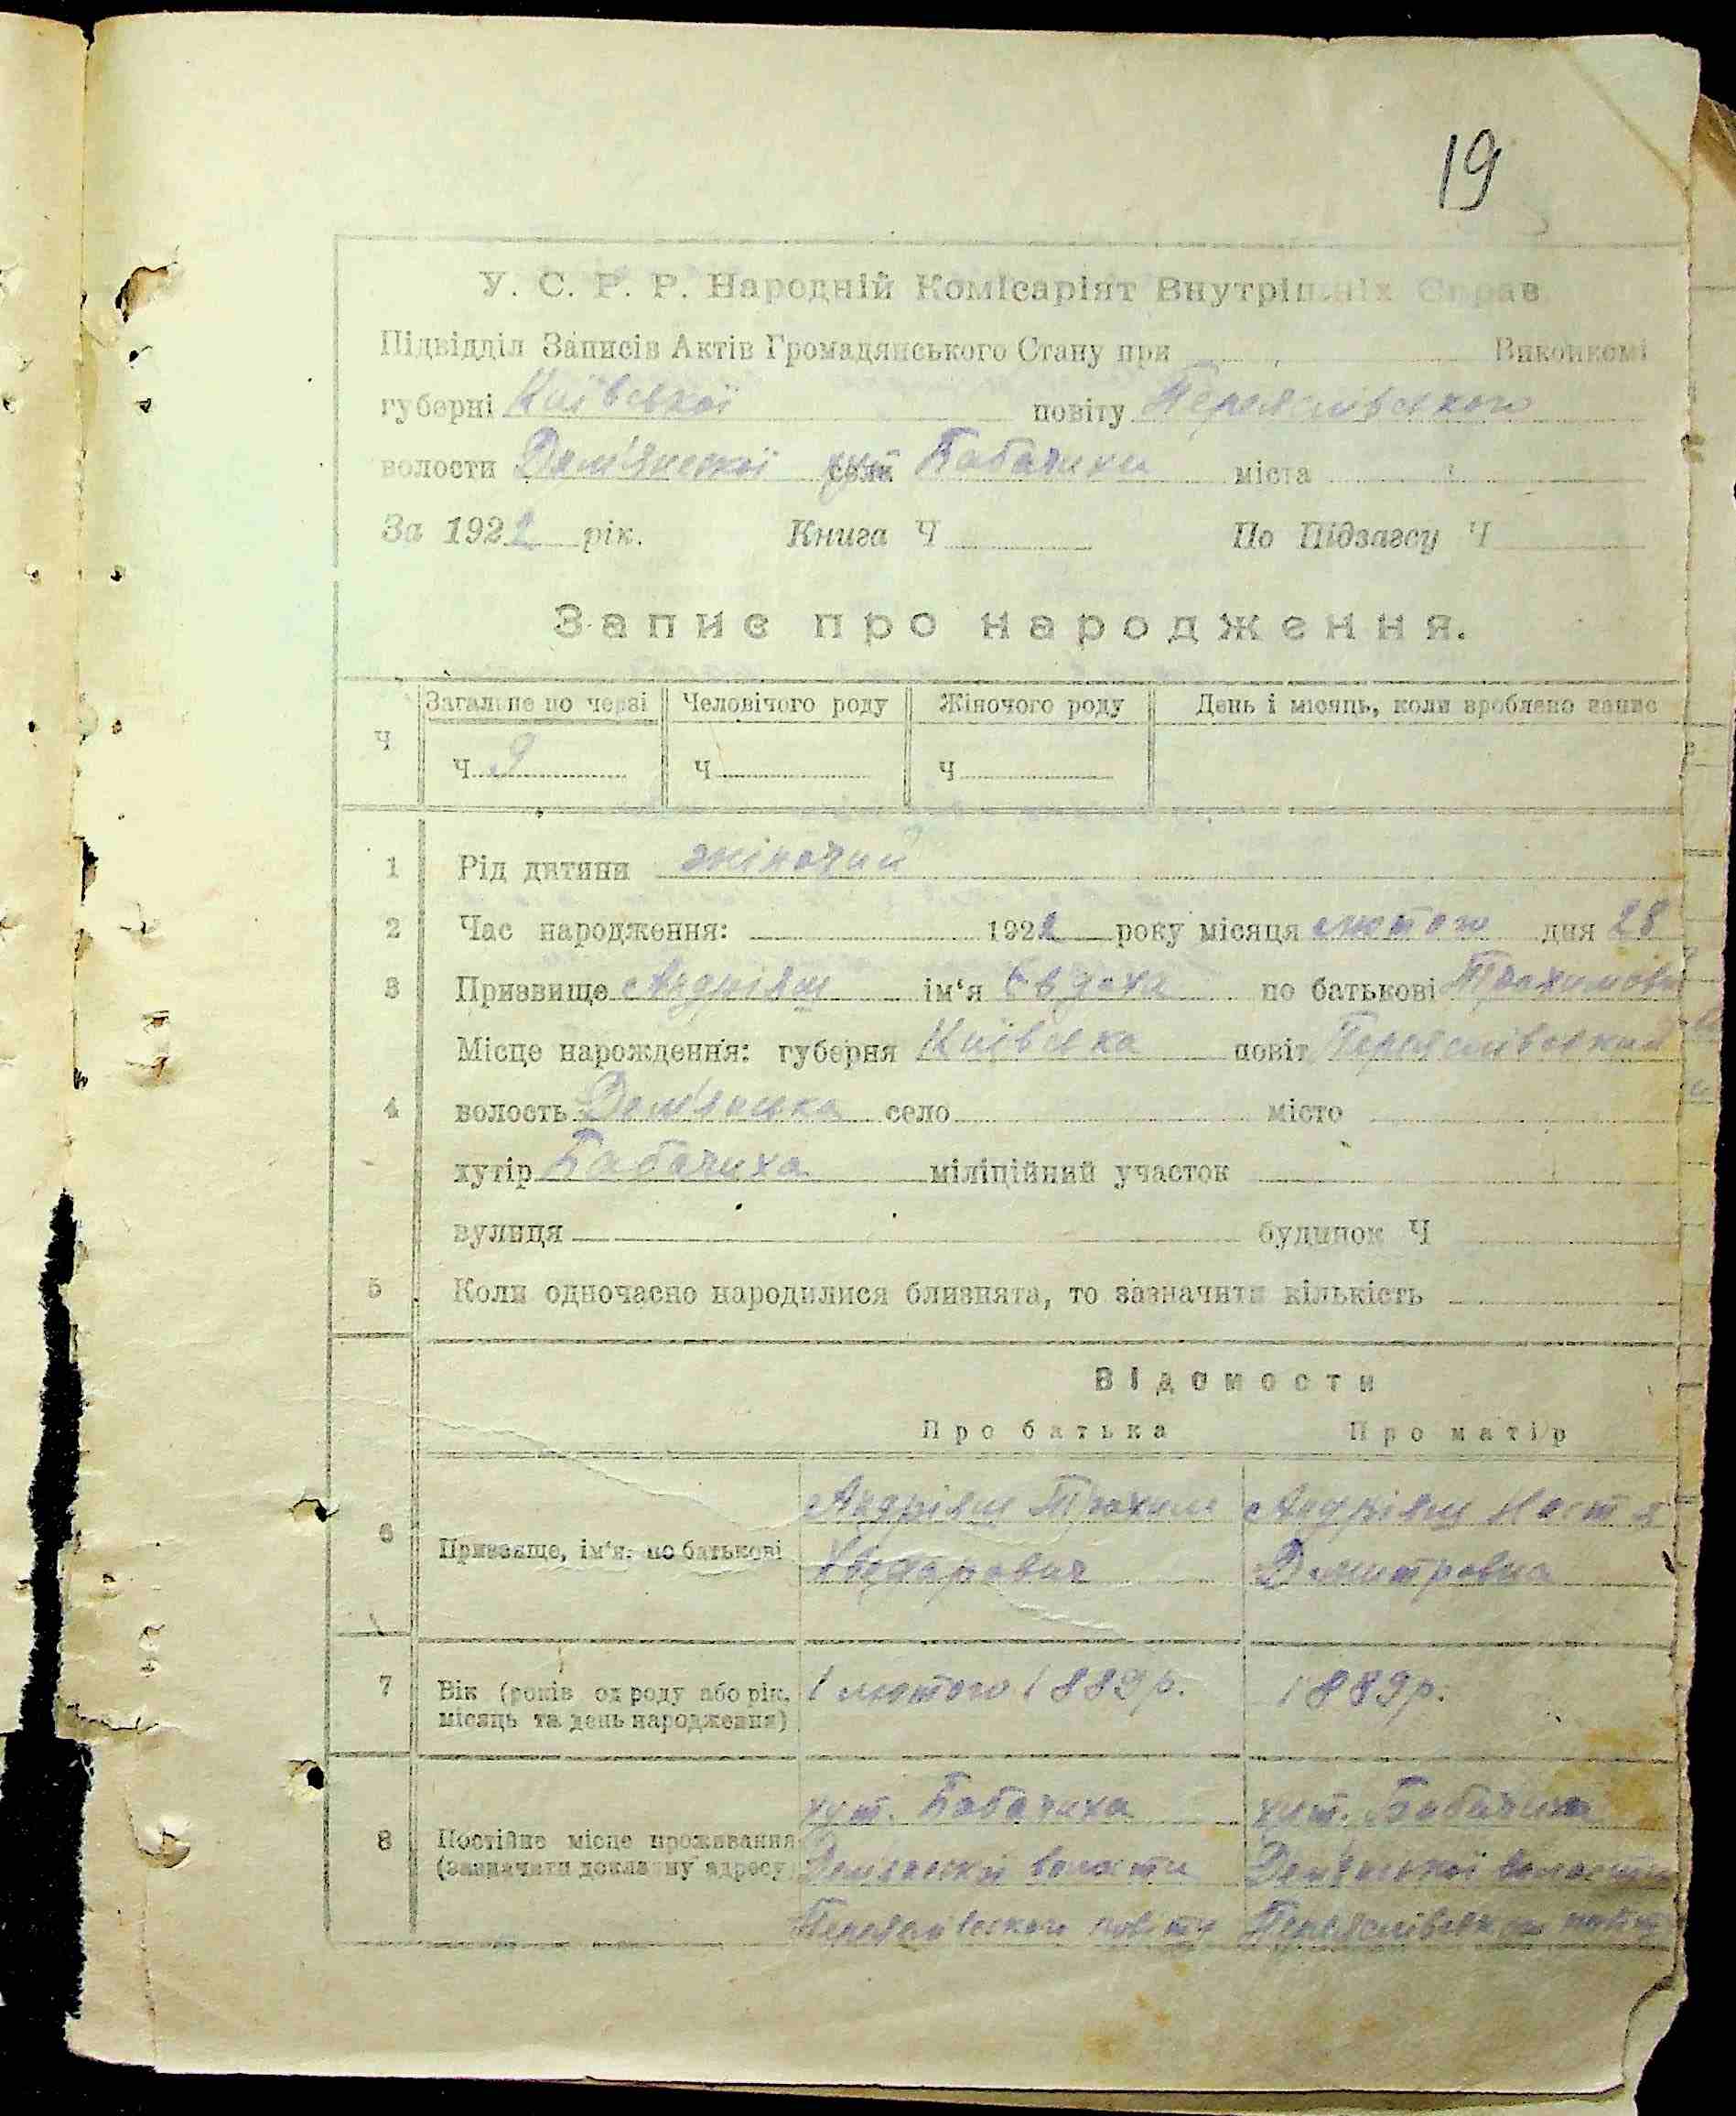 19
У. С. Р. Р. Народній Комісаріят Внутрішніх Справ
Підвідділ Записів Актів Громадянського Стану при Виконкомі
губерні Київської повіту Переяслівського
волости Демʼянської села хут Бабачихи міста
За 1922 рік. Книга Ч По Підзагсу Ч
Запис про народження.
Загальне по черзі Человічого роду Жіночого роду День і місяць, коли зроблено запис
Ч Ч 9 Ч Ч
1 Рід дитини жіночий
2 Час народження: 1922 року місяця лютого дня 28
3 Призвище Андріяш ім‘я Євдоха по батькові Трохимовн
Місце нарождення: губерня Київська повіт Переяслівський
4 волость Демʼянська село місто
хутір Бабачиха міліційний участок
вулиця будинок Ч
5 Коли одночасно народилися близнята, то зазначити кількість
Відомости
Про батька Про матір
Андріяш Трохим Андріяш Настя
6 Призвище, ім‘я, по батькові Дмитровна
7 Вік (років од роду або рік, 1 лютого 1889 р. 1889 р.
місяць та день народження)
хут. Бабачиха хут. Бабачиха
8 Постійне місце проживання
(зазначити докладну адресу) волости Демʼянської волости
Переяслівського повіту Переяслівського повіту